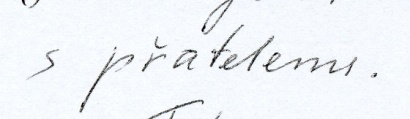 s přatelemi.